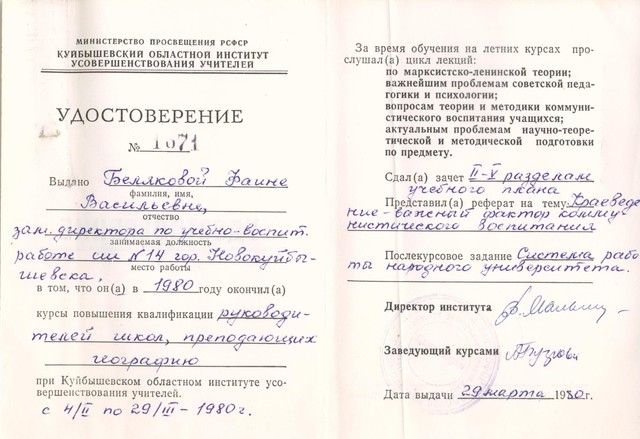 МИНИСТЕРСТВО ПРОСВЕЩЕНИЯ РСФСР
КУЙБЫШЕВСКИЙ ОБЛАСТНОЙ ИНСТИТУТ
УСОВЕРШЕНСТВОВАНИЯ УЧИТЕЛЕЙ
УДОСТОВЕРЕНИЕ
№ 1671
Выдано Беляковой Фаине
фамилия, имя,
Васильевне,
отчество
зам. директора по учебно-воспит.
занимаемая должность
работе сш №14 гор. Новокуйбы-
место работы
шевска.
в том, что он(а) в 1980 году окончил(а)
курсы повышения квалификации руководи-
телей школ, преподающих
географию
при Куйбышевском областном институте усо-
вершенствования учителей.
с 4/II по 29/III – 1980г.
За время обучения на летних курсах про-
слушал(а) цикл лекций:
по марксистско-ленинской теории;
важнейшим проблемам советской педа-
гогики и психологии;
вопросам теории и методики коммуни-
стического воспитания учащихся;
актуальным проблемам научно-теоре-
тической и методической подготовки
по предмету.
Сдал(а) зачет II-V разделам
учебного плана
Представил(а) реферат на тему: Краеведе-
ние – важный фактор комму-
нистического воспитания
Послекурсовое задание Система рабо-
ты народного университета.
Директор института
Заведующий курсами
Дата выдачи 29 марта 1980г.